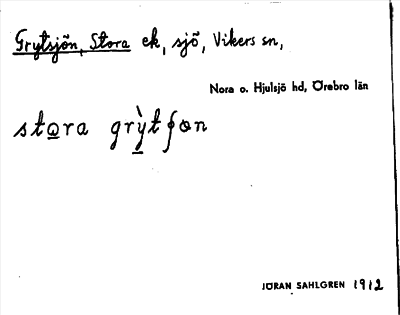 Grytsjön, Stora ek, sjö, Vikers sn,
Nora o. Hjulsjö hd, Örebro län
stora grỳtʃon
JÖRAN SAHLGREN 1912